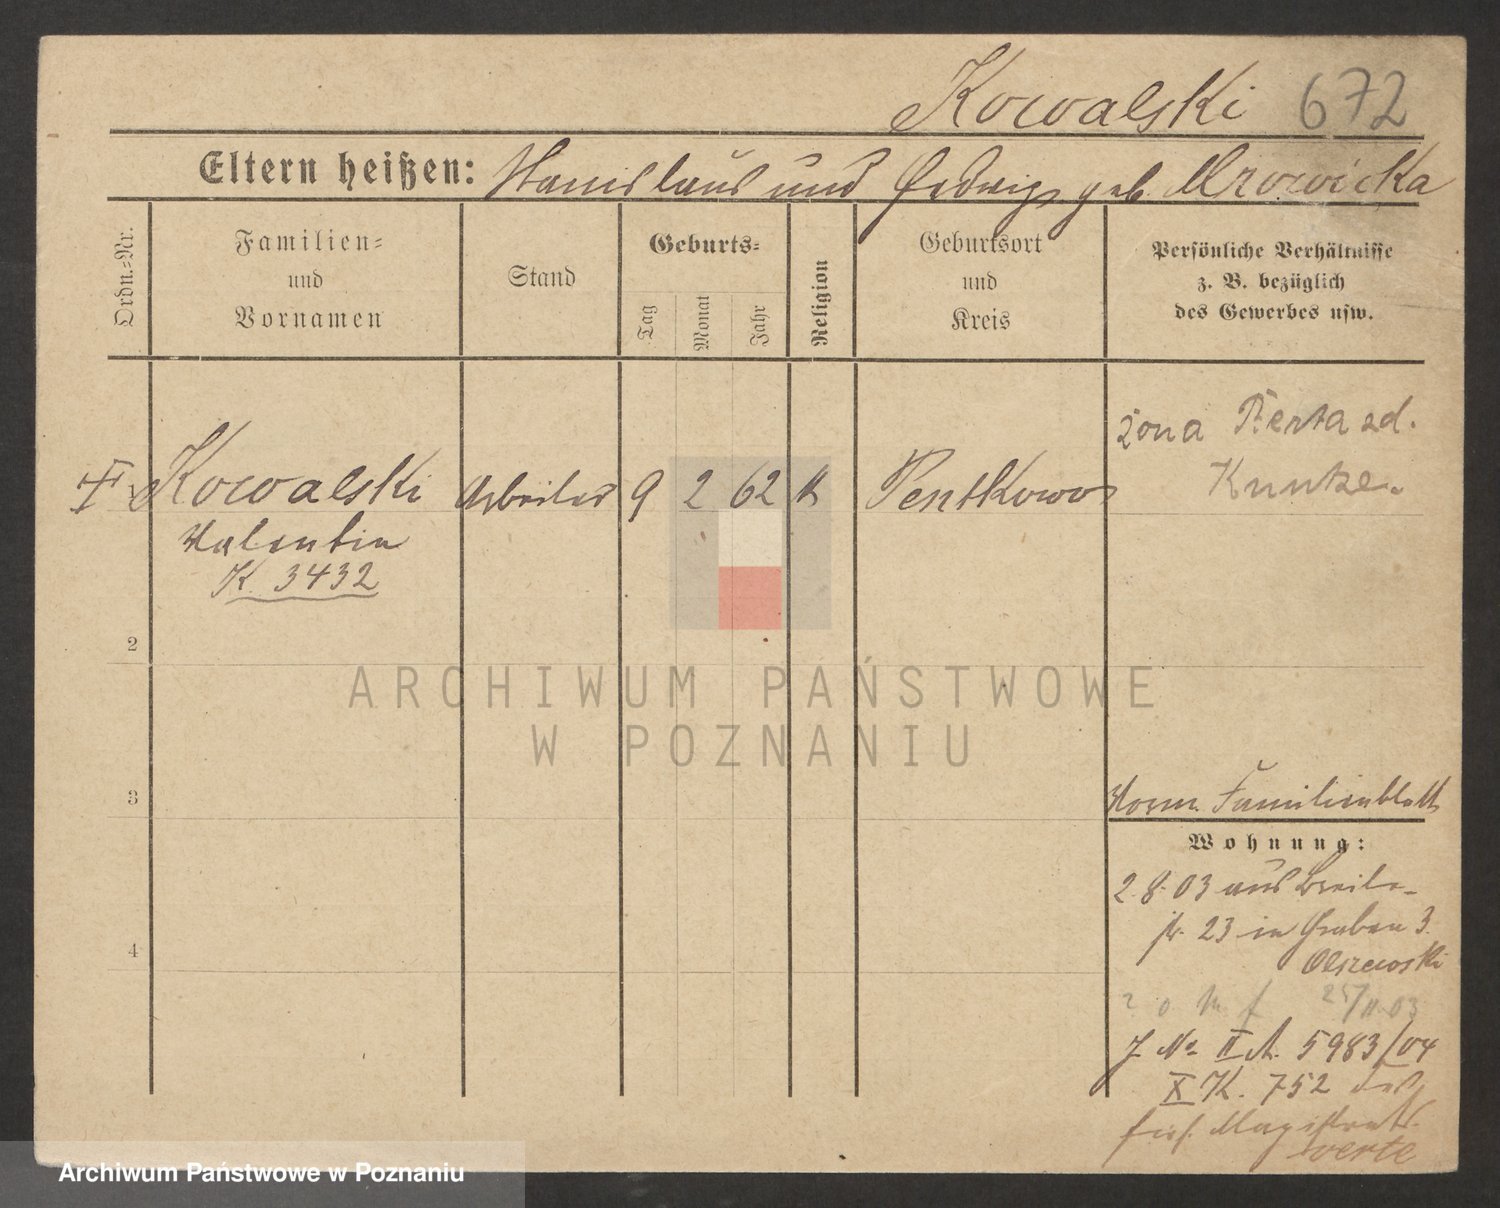 Kowalski 672
Eltern heißen: Stanislaus und Hedwig geb. Mrowicka
Ordn.-Nr.
Familien-
und
Vornamen
Stand
Geburts-
Tag
Monat
Jahr
Religion
Geburtsort
und
Kreis
Persönliche Verhältnisse
z. B. bezüglich
des Gewerbes usw.
Kowalski Arbeiter 9 2 62 k Pentkowo
Valentin
K. 3432
żona Berta zd.
Kuntze.
2
3
4
ARCHIWUM PAŃSTWOWE
W POZNANIU
Familienblatt
Wohnung:
2. 8. 03 aus Breite-
str. 23 in Graben 3.
Olszewski
25/11 03
J. No II A. 5983/04
X K. 752
Magistrat
verte
Archiwum Państwowe w Poznaniu